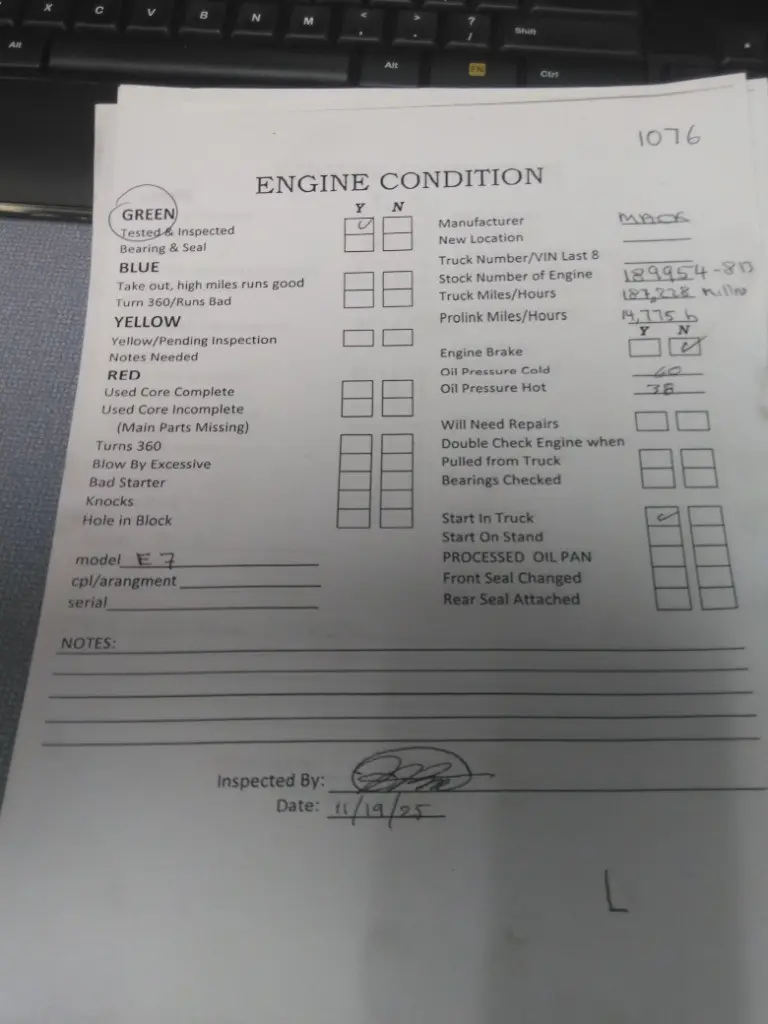 X C V B N M < , > . ? / Shift
Alt Alt EN Ctrl
1076
ENGINE CONDITION
Y N
GREEN
Tested & Inspected
Bearing & Seal
BLUE
Take out, high miles runs good
Turn 360/Runs Bad
YELLOW
Yellow/Pending Inspection
Notes Needed
RED
Used Core Complete
Used Core Incomplete
(Main Parts Missing)
Turns 360
Blow By Excessive
Bad Starter
Knocks
Hole in Block
model E7
cpl/arangment
serial
Manufacturer MACK
New Location
Truck Number/VIN Last 8
Stock Number of Engine 189954-813
Truck Miles/Hours 187,228 Miles
Prolink Miles/Hours 14,775 h
Y N
Engine Brake
Oil Pressure Cold 60
Oil Pressure Hot 38
Will Need Repairs
Double Check Engine when
Pulled from Truck
Bearings Checked
Start In Truck
Start On Stand
PROCESSED OIL PAN
Front Seal Changed
Rear Seal Attached
NOTES:
Inspected By:
Date: 11/19/25
L